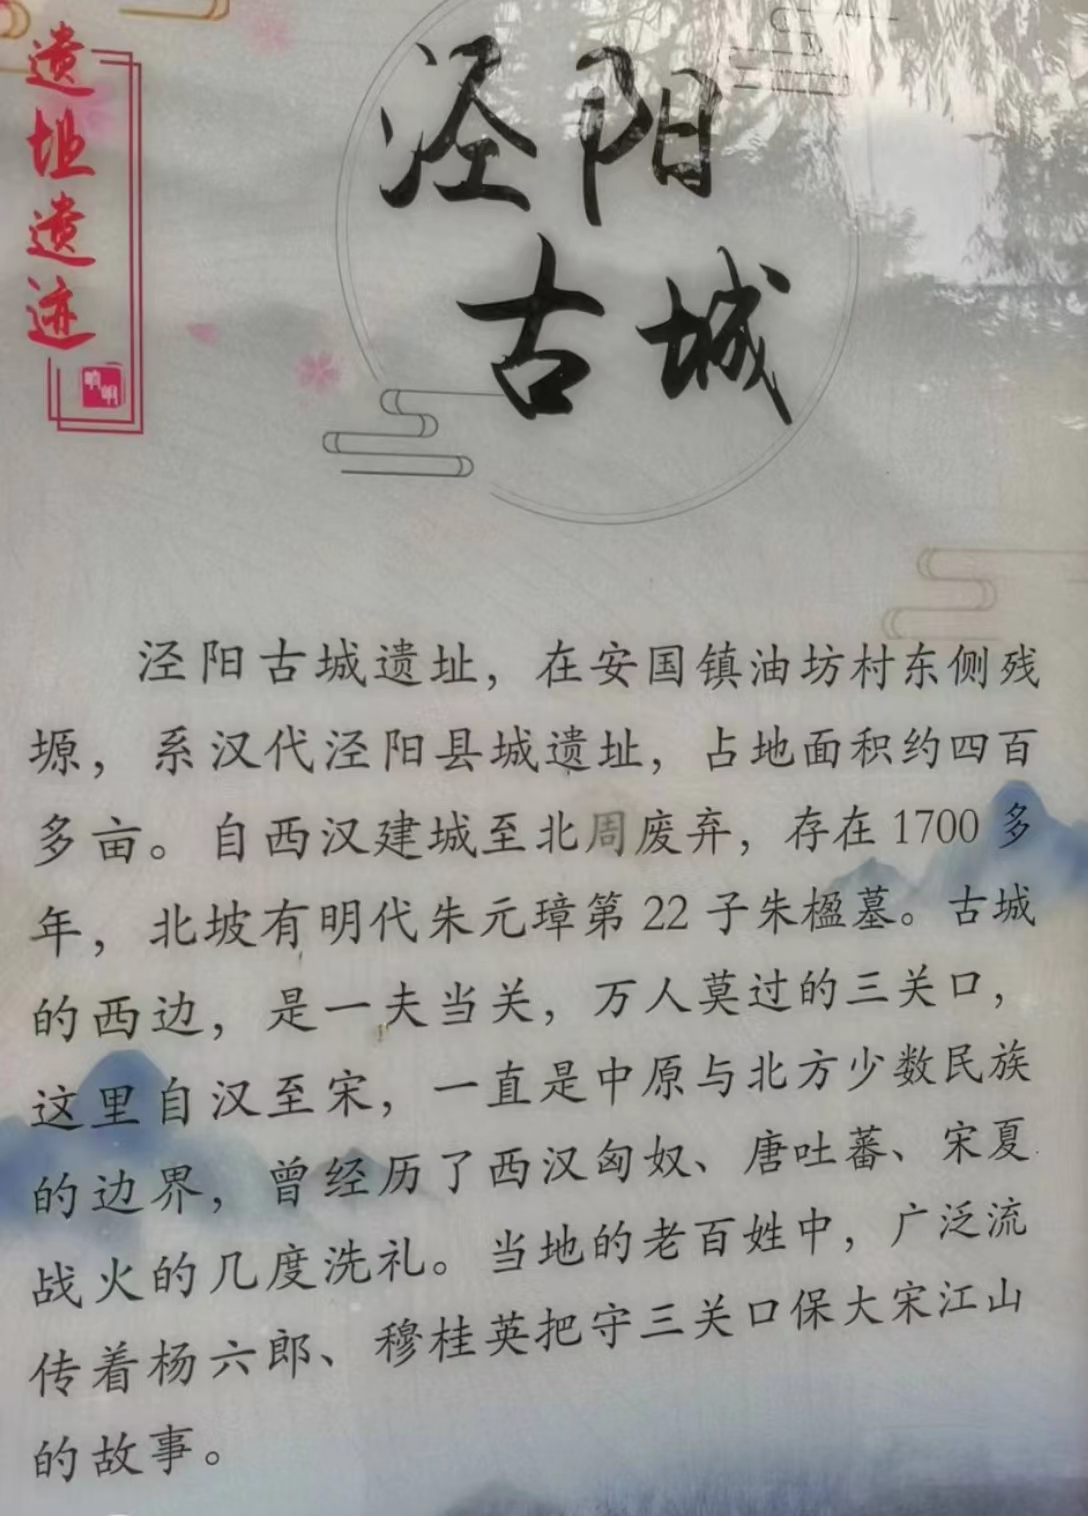 遗址遗迹
泾阳
古城
泾阳古城遗址，在安国镇油坊村东侧残
塬，系汉代泾阳县城遗址，占地面积约四百
多亩。自西汉建城至北周废弃，存在1700多
年，北坡有明代朱元璋第22子朱楹墓。古城
的西边，是一夫当关，万人莫过的三关口，
这里自汉至宋，一直是中原与北方少数民族
的边界，曾经历了西汉匈奴、唐吐蕃、宋夏
战火的几度洗礼。当地的老百姓中，广泛流
传着杨六郎、穆桂英把守三关口保大宋江山
的故事。